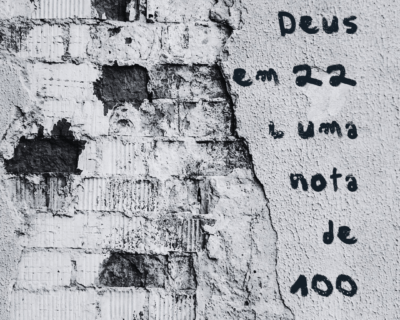 Deus
em 22
e uma
nota
de
100